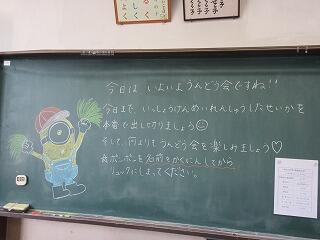 今日は いよいようんどう会ですね!!
今日まで、いっしょうけんめいれんしゅうしたせいかを
本番で出しきりましょう☺
そして、何よりもうんどう会を楽しみましょう♡
☆ポンポンを名前をかくにんしてから
リュックにしまってください。